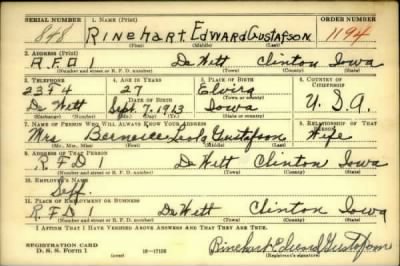 SERIAL NUMBER 1. NAME (Print) ORDER NUMBER
848 Rinehart Edward Gustafson 1194
(First) (Middle) (Last)
2. ADDRESS (Print)
R.F.D 1 De Witt Clinton Iowa
(Number and street or R. F. D. number) (Town) (County) (State)
3. TELEPHONE 4. AGE IN YEARS 5. PLACE OF BIRTH 6. COUNTRY OF CITIZENSHIP
23F4 27 Elvira
DATE OF BIRTH
De Witt Sept. 7, 1913 Iowa U.S.A.
(Exchange) (Number) (Mo.) (Day) (Yr.) (State or country)
7. NAME OF PERSON WHO WILL ALWAYS KNOW YOUR ADDRESS 8. RELATIONSHIP OF THAT PERSON
Mrs. Bernice Gustafson Wife
(Mr., Mrs., Miss) (First) (Middle) (Last)
9. ADDRESS OF THAT PERSON
R F D 1 De Witt Clinton Iowa
(Number and street or R. F. D. number) (Town) (County) (State)
10. EMPLOYER'S NAME
Self
11. PLACE OF EMPLOYMENT OR BUSINESS
R F D De Witt Clinton Iowa
(Number and street or R. F. D. number) (Town) (County) (State)
I AFFIRM THAT I HAVE VERIFIED ABOVE ANSWERS AND THAT THEY ARE TRUE.
REGISTRATION CARD
D. S. S. Form 1 16—17105 Rinehart Edward Gustafson
(Registrant's signature)